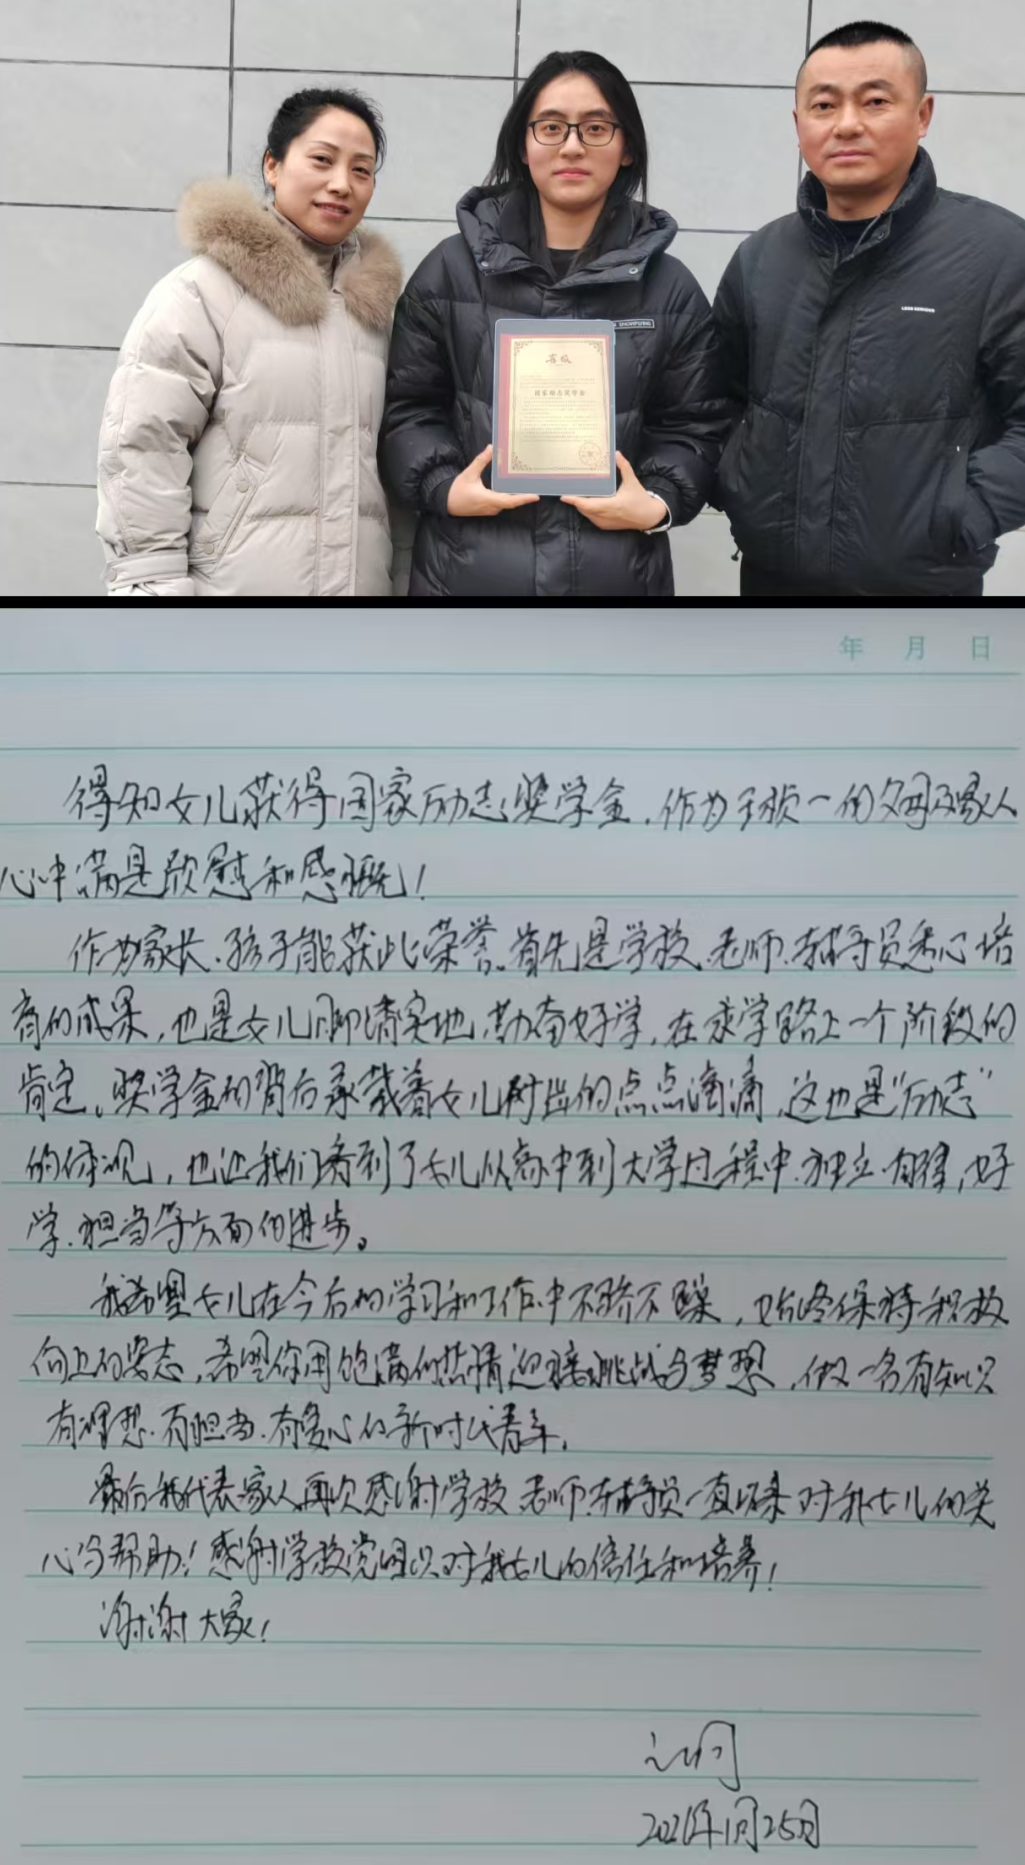 国家励志奖学金
年 月 日
得知女儿获得国家励志奖学金，作为一的父母及家人
心中满是欣慰和感慨！
作为家长，孩子能获此荣誉。首先是学校、老师、辅导员悉心培
育的成果，也是女儿脚踏实地，勤奋好学，在求学路上一个阶段的
肯定。奖学金的背后承载着女儿付出的点点滴滴，这也是“励志”
的体现，也让我们看到了女儿从高中到大学过程中、独立、自律，好
学、担当等方面的进步。
我希望女儿在今后的学习和工作中不骄不躁，始终保持积极
向上的姿态，希望你用饱满的热情迎接挑战与梦想，做一名有知识
有理想、有担当、有爱心的新时代青年。
最后我代表家人再次感谢学校、老师、辅导员一直以来对我女儿的关
心与帮助！感谢学校党组织对我女儿的信任和培养！
谢谢大家！
1月25日